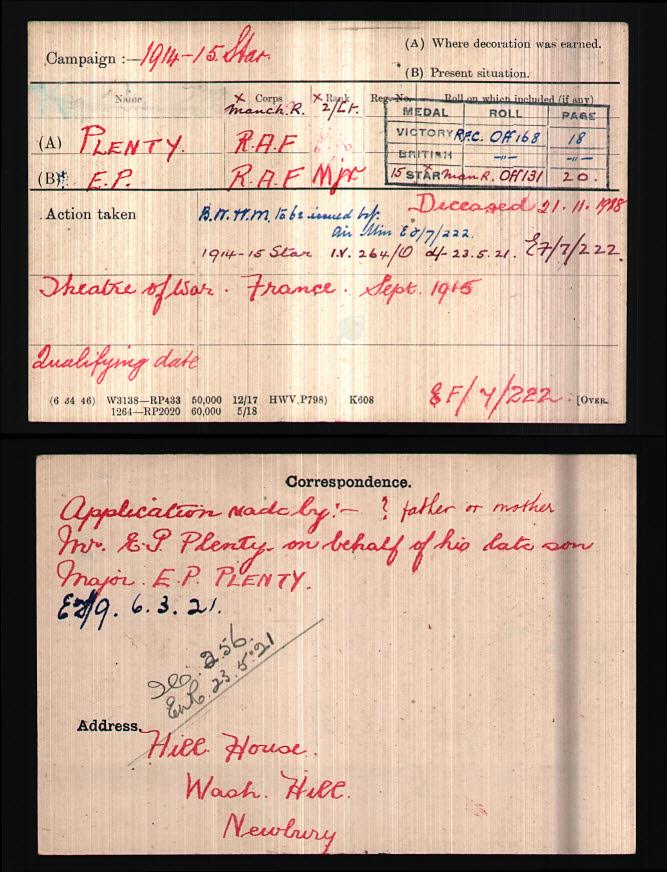 Campaign :— 1914-15 Star.
(A) Where decoration was earned.
(B) Present situation.
Name Corps Rank Reg. No. Roll on which included (if any)
x Manch. R. x 2/Lt.
MEDAL ROLL PAGE
(A) PLENTY. R.A.F
VICTORY R.F.C. Off 168 18
BRITISH -"- -"-
(B) E.P. R.A.F Mjr
15 STAR x Man R. Off 131 20.
Deceased 21.11.1918
Action taken B.W.V.M. to be issued by
Air Min E2/7/222.
1914-15 Star I.V. 264/O d/- 23.5.21. E7/7/222.
Theatre of War. France. Sept. 1915
Qualifying date
EF/7/222.
(6 34 46) W3138—RP433 50,000 12/17 HWV(P798) K608 [OVER.
1264—RP2020 60,000 5/18
Correspondence.
Application made by:- ? father or mother
Mr. E.P. Plenty on behalf of his late son
Major. E.P. PLENTY.
6.3.21.
256.
23.5.21
Address.
Hill House.
Wash. Hill.
Newbury